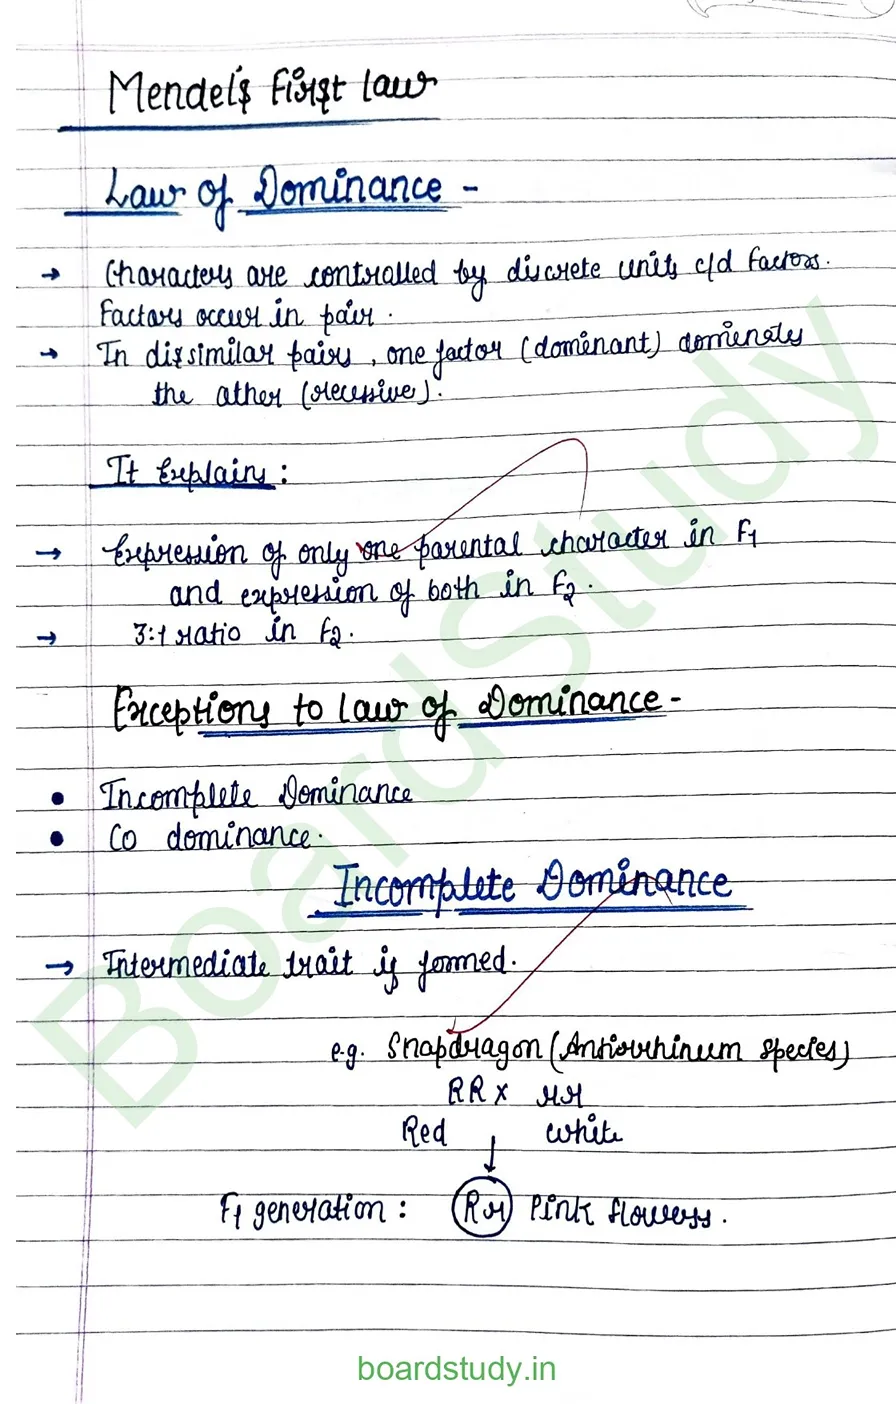 Mendel's First Law
Law of Dominance -
→ Characters are controlled by discrete units c/d factors.
Factors occur in pair.
→ In dissimilar pairs, one factor (dominant) dominats
the other (recessive).
It Explains:
→ Expression of only one parental character in F1
and expression of both in F2.
→ 3:1 ratio in F2.
Exceptions to Law of Dominance -
• Incomplete Dominance
• Co dominance.
Incomplete Dominance
→ Intermediate trait is formed.
e.g. Snapdragon (Antirrhinum species)
RR x rr
Red ↓ white
F1 generation: Rr Pink flowers.
BoardStudy
boardstudy.in